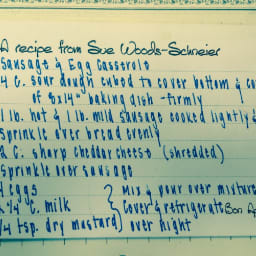 A recipe from Sue Woods-Schneier
Sausage & Egg Casserole
4 C. sour dough cubed to cover bottom &
of 8x14" baking dish - firmly
1 lb. hot & 1 lb. mild sausage cooked lightly &
sprinkle over bread evenly
2 C. sharp cheddar cheese (shredded)
sprinkle over sausage
4 eggs } Mix & pour over mixture
2 1/4 C. milk } cover & refrigerate Bon
1/4 tsp. dry mustard) over night